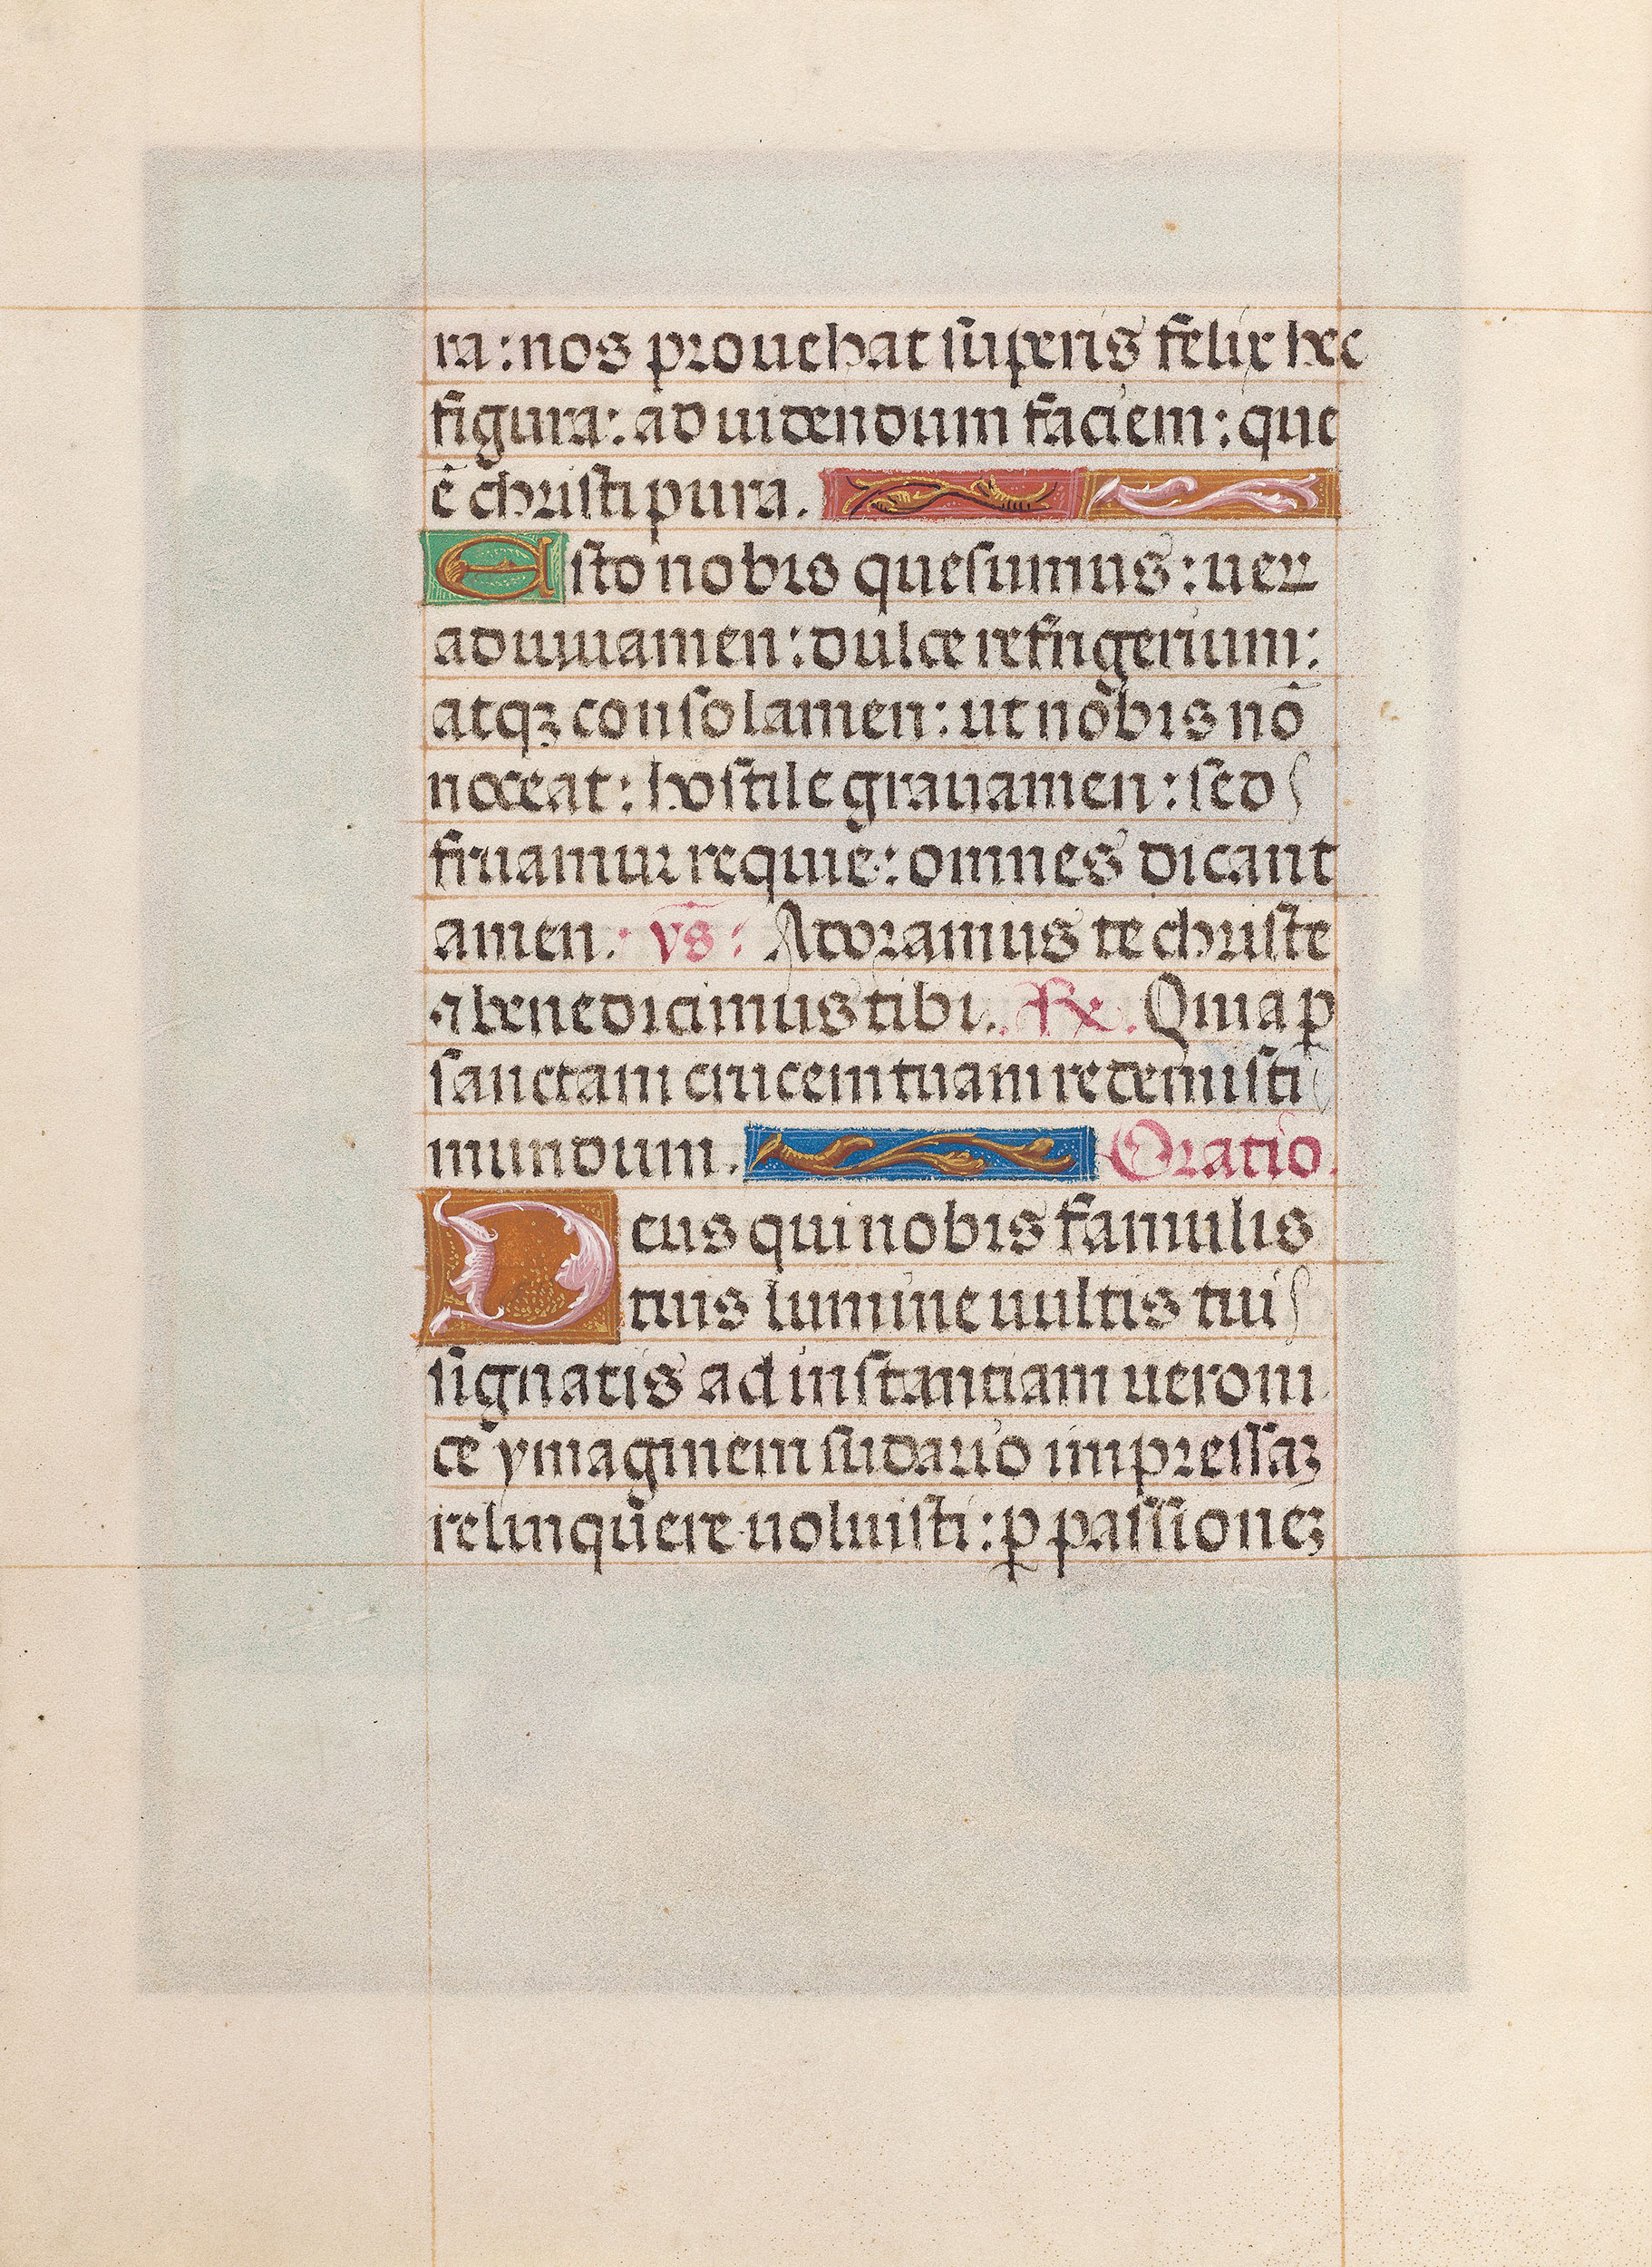 ra: nos prouehat suꝑeris felix hec
figura: ad uidendum faciem: que
ē christi pura.
Esto nobis quesumus: uer
adiuuamen: dulce refrigerium:
atqꝫ consolamen: ut nobis nō
noceat: hostile grauamen: sed
fruamur requie: omnes dicant
amen. v̄s: Adoramus te christe
⁊ benedicimus tibi. ℟. Quia ꝑ
sanctam crucem tuam redemisti
mundum. Oratio.
Deus qui nobis famulis
tuis lumine uultis tui
signatis ad instantiam ueroni
ce ymaginem sudario impressaꝫ
relinquere uoluisti: ꝑ passioneꝫ